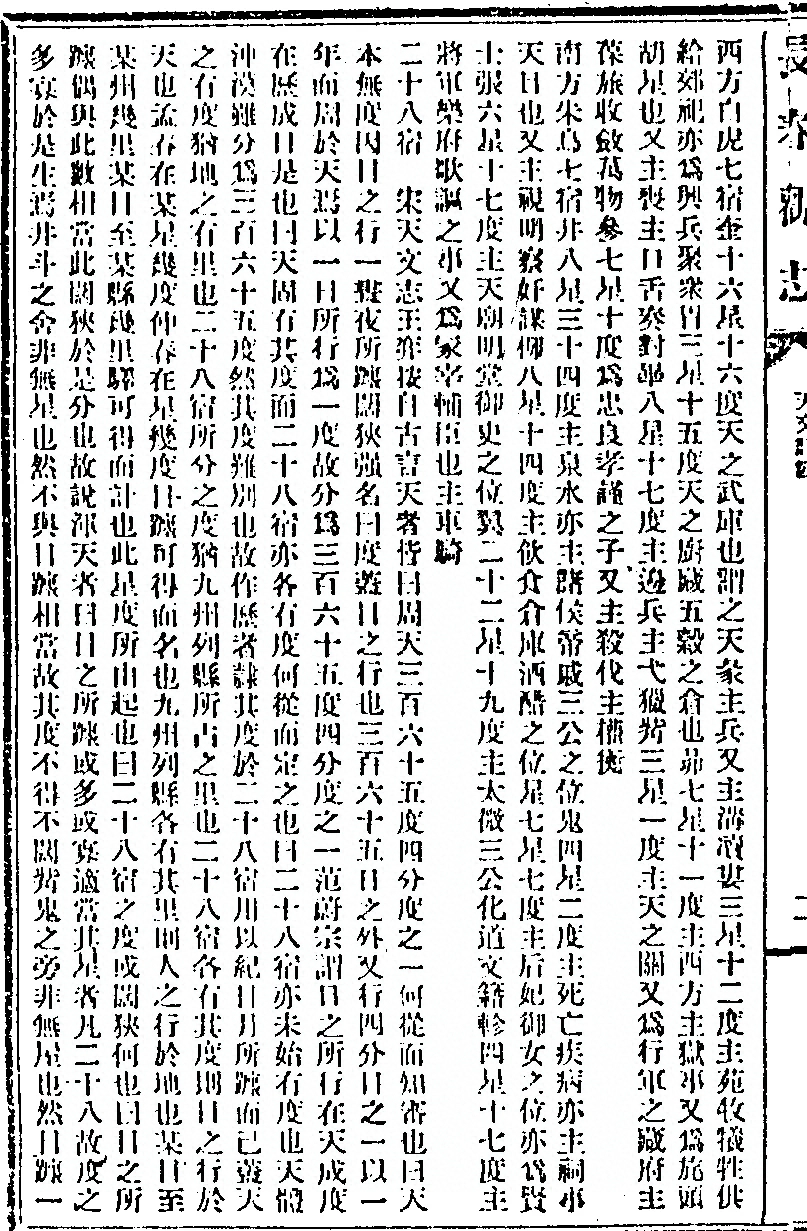 西方白虎七宿奎十六星十六度天之武庫也謂之天豕主兵又主溝瀆婁三星十二度主苑牧犧牲供
給郊祀亦爲興兵聚衆胃三星十五度天之廚藏五穀之倉也昴七星十一度主西方主獄事又爲旄頭
胡星也又主喪主口舌奏對畢八星十七度主邊兵主弋獵觜三星一度主天之關又爲行軍之藏府主
葆旅收斂萬物參七星十度爲忠良孝謹之子又主殺伐主權衡
南方朱鳥七宿井八星三十四度主泉水亦主諸侯帝戚三公之位鬼四星二度主死亡疾病亦主祠事
天目也又主視明察奸謀柳八星十四度主飲食倉庫酒醋之位星七星七度主后妃御女之位亦爲賢
士張六星十七度主天廟明堂御史之位翼二十二星十九度主太微三公化道文籍軫四星十七度主
將軍樂府歌謳之事又爲冢宰輔臣也主車騎
二十八宿　宋天文志王奕按自古言天者皆曰周天三百六十五度四分度之一何從而知審也曰天
本無度因日之行一晝夜所躔闊狹強名曰度蓋日之行也三百六十五日之外又行四分日之一以一
年而周於天焉以一日所行爲一度故分爲三百六十五度四分度之一范蔚宗謂日之所行在天成度
在歷成日是也曰天固有其度而二十八宿亦各有度何從而定之也曰二十八宿亦未始有度也天體
沖漠難分爲三百六十五度然其度難別也故作歷者隸其度於二十八宿用以紀日月所躔而已蓋天
之有度猶地之有里也二十八宿所分之度猶九州列縣所占之里也二十八宿各有其度則日之行於
天也孟春在某星幾度仲春在星幾度日躔可得而名也九州列縣各有其里則人之行於地也某日至
某州幾里某日至某縣幾里驛可得而計也此星度所由起也曰二十八宿之度或闊狹何也曰日之所
躔偶與此數相當此闊狹於是分也故說渾天者曰日之所躔或多或寡適當其星者凡二十八故度之
多寡於是生焉井斗之舍非無星也然不與日躔相當故其度不得不闊觜鬼之旁非無星也然日躔一
長春縣志
二